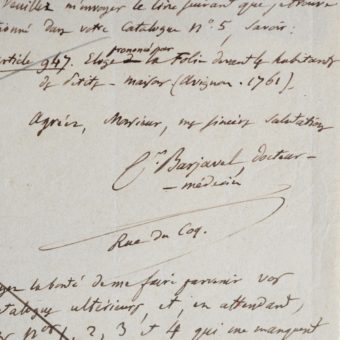 Veuillez m'envoyer le livre suivant que je trouve
ionné dans votre Catalogue n.° 5, savoir:
article 947. Eloge prononcé par la Folie devant 4 habitants
de petites-maisons (Avignon. 1761).
Agréez, Monsieur, mes sincères salutations
C. Barjavel, docteur-
-médecin
Rue du Coq.
la bonté de me faire parvenir vos
catalogues ultérieurs, et, en attendant,
nos 1, 2, 3 et 4 qui me manquent